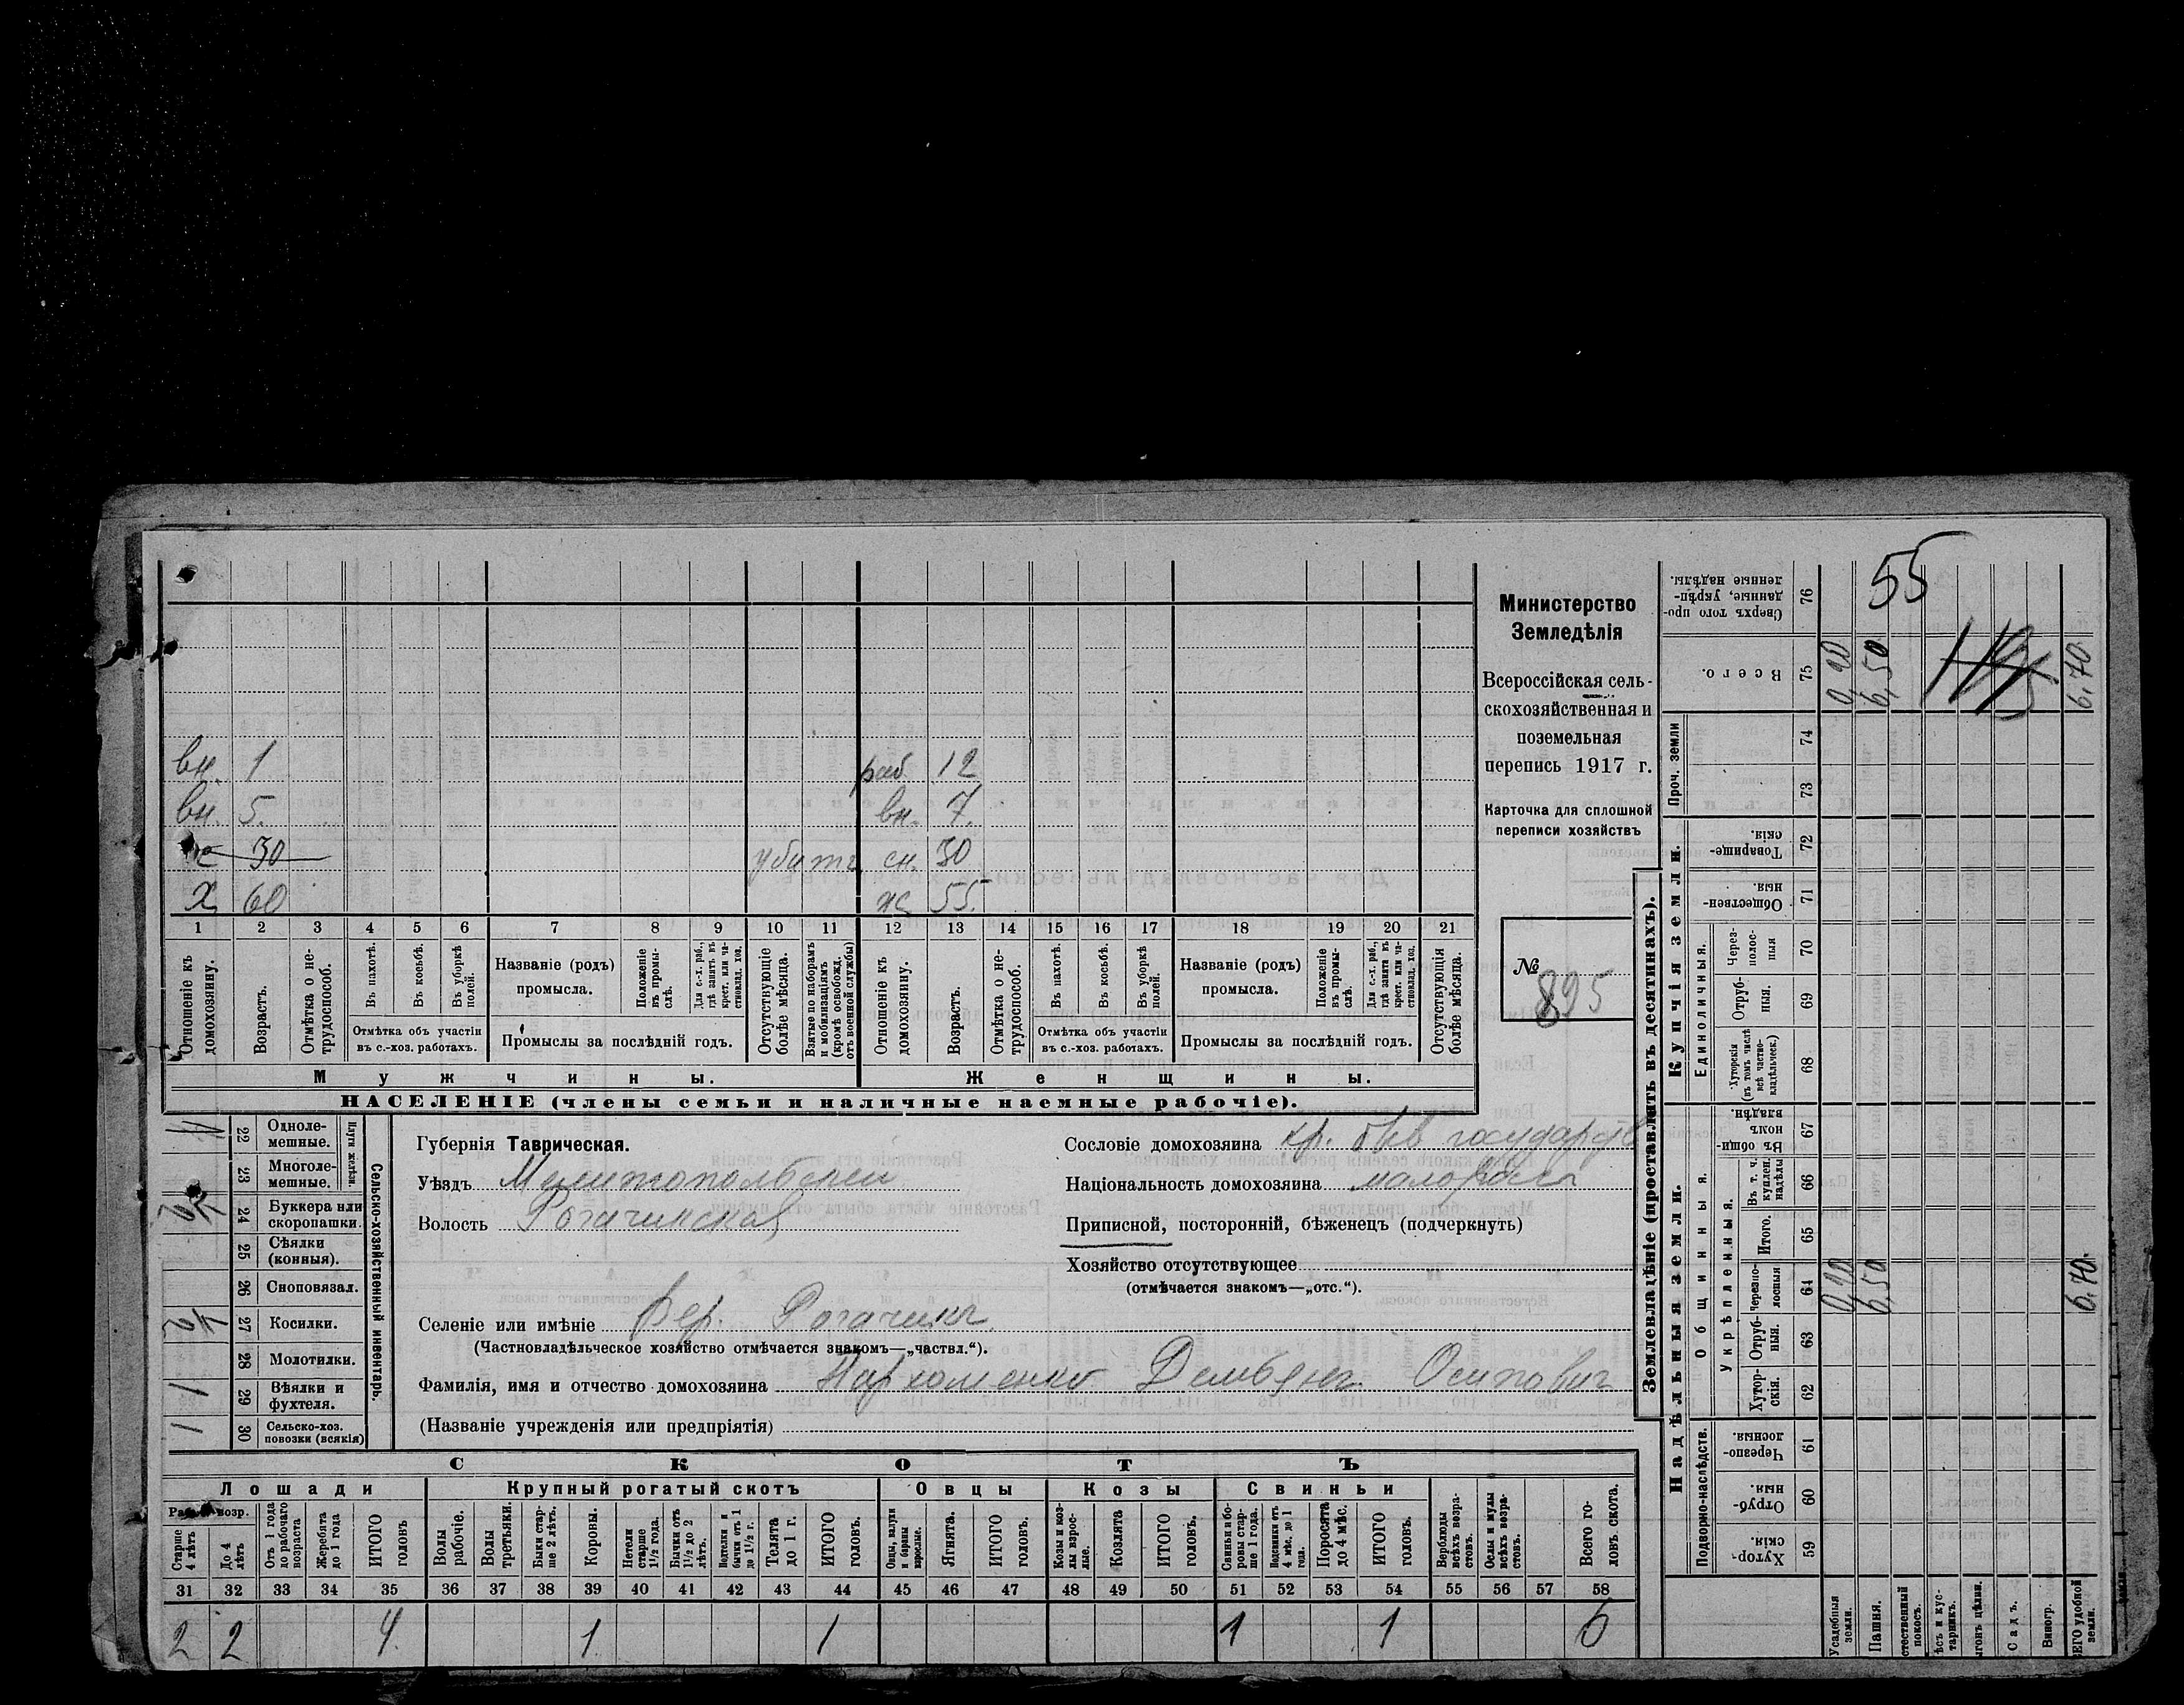 вн. 1
раб 12
вн. 5.
вн. 7.
30
убитъ
сн. 30
х 60
ж 55.
1 2 3 4 5 6 7 8 9 10 11 12 13 14 15 16 17 18 19 20 21
Отношеніе къ домохозяину.
Возрастъ.
Отмѣтка о не-трудоспособ.
Въ пахотѣ.
Въ косьбѣ.
Въ уборкѣ полей.
Отмѣтка объ участіи
въ с.-хоз. работахъ.
Названіе (родъ)
промысла.
Положеніе въ промы-слѣ.
Для с.-х. раб., гдѣ занятъ въ крест. или ча-стновлад. хоз.
Промыслы за послѣдній годъ.
Отсутствующіе болѣе мѣсяца.
Взятые по наборамъ и мобилизаціямъ (кромѣ освобожд. отъ военной службы)
Отношеніе къ домохозяину.
Возрастъ.
Отмѣтка о не-трудоспособ.
Въ пахотѣ.
Въ косьбѣ.
Въ уборкѣ полей.
Отмѣтка объ участіи
въ с.-хоз. работахъ.
Названіе (родъ)
промысла.
Положеніе въ промы-слѣ.
Для с.-х. раб., гдѣ занята въ крест. или ча-стновлад. хоз.
Промыслы за послѣдній годъ.
Отсутствующія болѣе мѣсяца.
Мужчины.
Женщины.
НАСЕЛЕНІЕ (члены семьи и наличные наемные рабочіе).
Министерство
Земледѣлія
Всероссійская сель-
скохозяйственная и
поземельная
перепись 1917 г.
Карточка для сплошной
переписи хозяйствъ
№
895
22 Одноле-мешные.
23 Многоле-мешные.
Плуги желѣзн.
24 Буккера или скоропашки.
25 Сѣялки (конныя).
26 Сноповязал.
27 Косилки.
28 Молотилки.
29 Вѣялки и фухтеля.
30 Сельско-хоз. повозки (всякія)
1/2
1/2
1
1
Сельско-хозяйственный инвентарь.
Губернія Таврическая.
Уѣздъ Мелитопольскій
Волость Рогачинская
Сословіе домохозяина кр. быв государств
Національность домохозяина малороссъ
Приписной, посторонній, бѣженецъ (подчеркнуть)
Хозяйство отсутствующее
(отмѣчается знакомъ—„отс.“).
Селеніе или имѣніе Вер. Рогачикъ.
(Частновладѣльческое хозяйство отмѣчается знакомъ—„частвл.“).
Фамилія, имя и отчество домохозяина Пархоменко Демьянъ Осипович
(Названіе учрежденія или предпріятія)
СКОТЪ
Лошади
Крупный рогатый скотъ
Овцы
Козы
Свиньи
Старше 4 лѣтъ
До 4 лѣтъ
Отъ 1 года до рабочаго возраста
Жеребята до 1 года
ИТОГО головъ
Волы рабочіе.
Волы третьяки.
Быки стар-ше 2 лѣтъ.
Коровы.
Нетели старше 1½ года.
Бычки отъ 1½ до 2 лѣтъ.
Подтелки и бычки отъ 1 до 1½ г.
Телята до 1 г.
ИТОГО головъ.
Овцы, валухи и бараны взрослые.
Ягнята.
ИТОГО головъ.
Козы и коз-лы взрос-лые.
Козлята
ИТОГО головъ.
Свиньи и бо-ровы стар-ше 1 года.
Подсвинки отъ 4 мѣс. до 1 года.
Поросята до 4 мѣс.
ИТОГО головъ.
Верблюды всѣхъ возра-стовъ.
Ослы и мулы всѣхъ возра-стовъ.
Всего го-ловъ скота.
31 32 33 34 35 36 37 38 39 40 41 42 43 44 45 46 47 48 49 50 51 52 53 54 55 56 57 58
2 2 4. 1 1 1 1 6
Землевладѣніе (проставлять въ десятинахъ).
Надѣльныя земли.
Купчія земли.
Проч. земли
Подворно-наслѣдств.
Общинныя.
Укрѣпленныя.
Единоличныя.
76 Сверхъ того про-данные, укрѣп-ленные надѣлы.
75 Всего.
74
73
72 Товарище-скія.
71 Обществен-ныя.
70 Через-полос-ныя
69 Отруб-ныя.
68 Хуторскія (въ томъ числѣ всѣ частно-владѣльческ.)
67 Въ общин-номъ владѣн.
66 Въ т. ч. куплен. надѣлы
65 Итого.
64 Черезпо-лосныя
63 Отруб-ныя.
62 Хутор-скія.
61 Черезпо-лосныя.
60 Отруб-ныя.
59 Хутор-скія.
55
0,20
6,50
6,70.
0,20
6,50
6,70.
Усадебныя земли.
Пашня.
стественный покосъ.
ѣсъ и кус-тарникъ.
ыгонъ цѣлин.
Садъ.
Виногр.
ЕГО удобной земли.